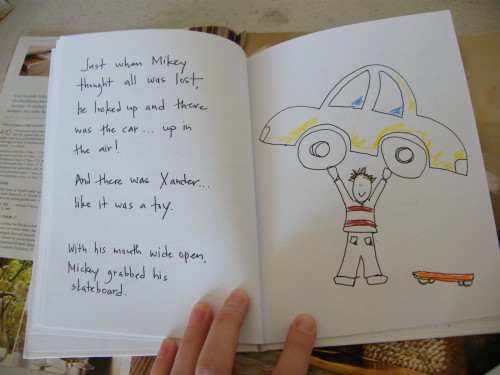 Just when Mikey
thought all was lost,
he looked up and there
was the car... up in
the air!
And there was Xander...
like it was a toy.
With his mouth wide open,
Mickey grabbed his
skateboard.